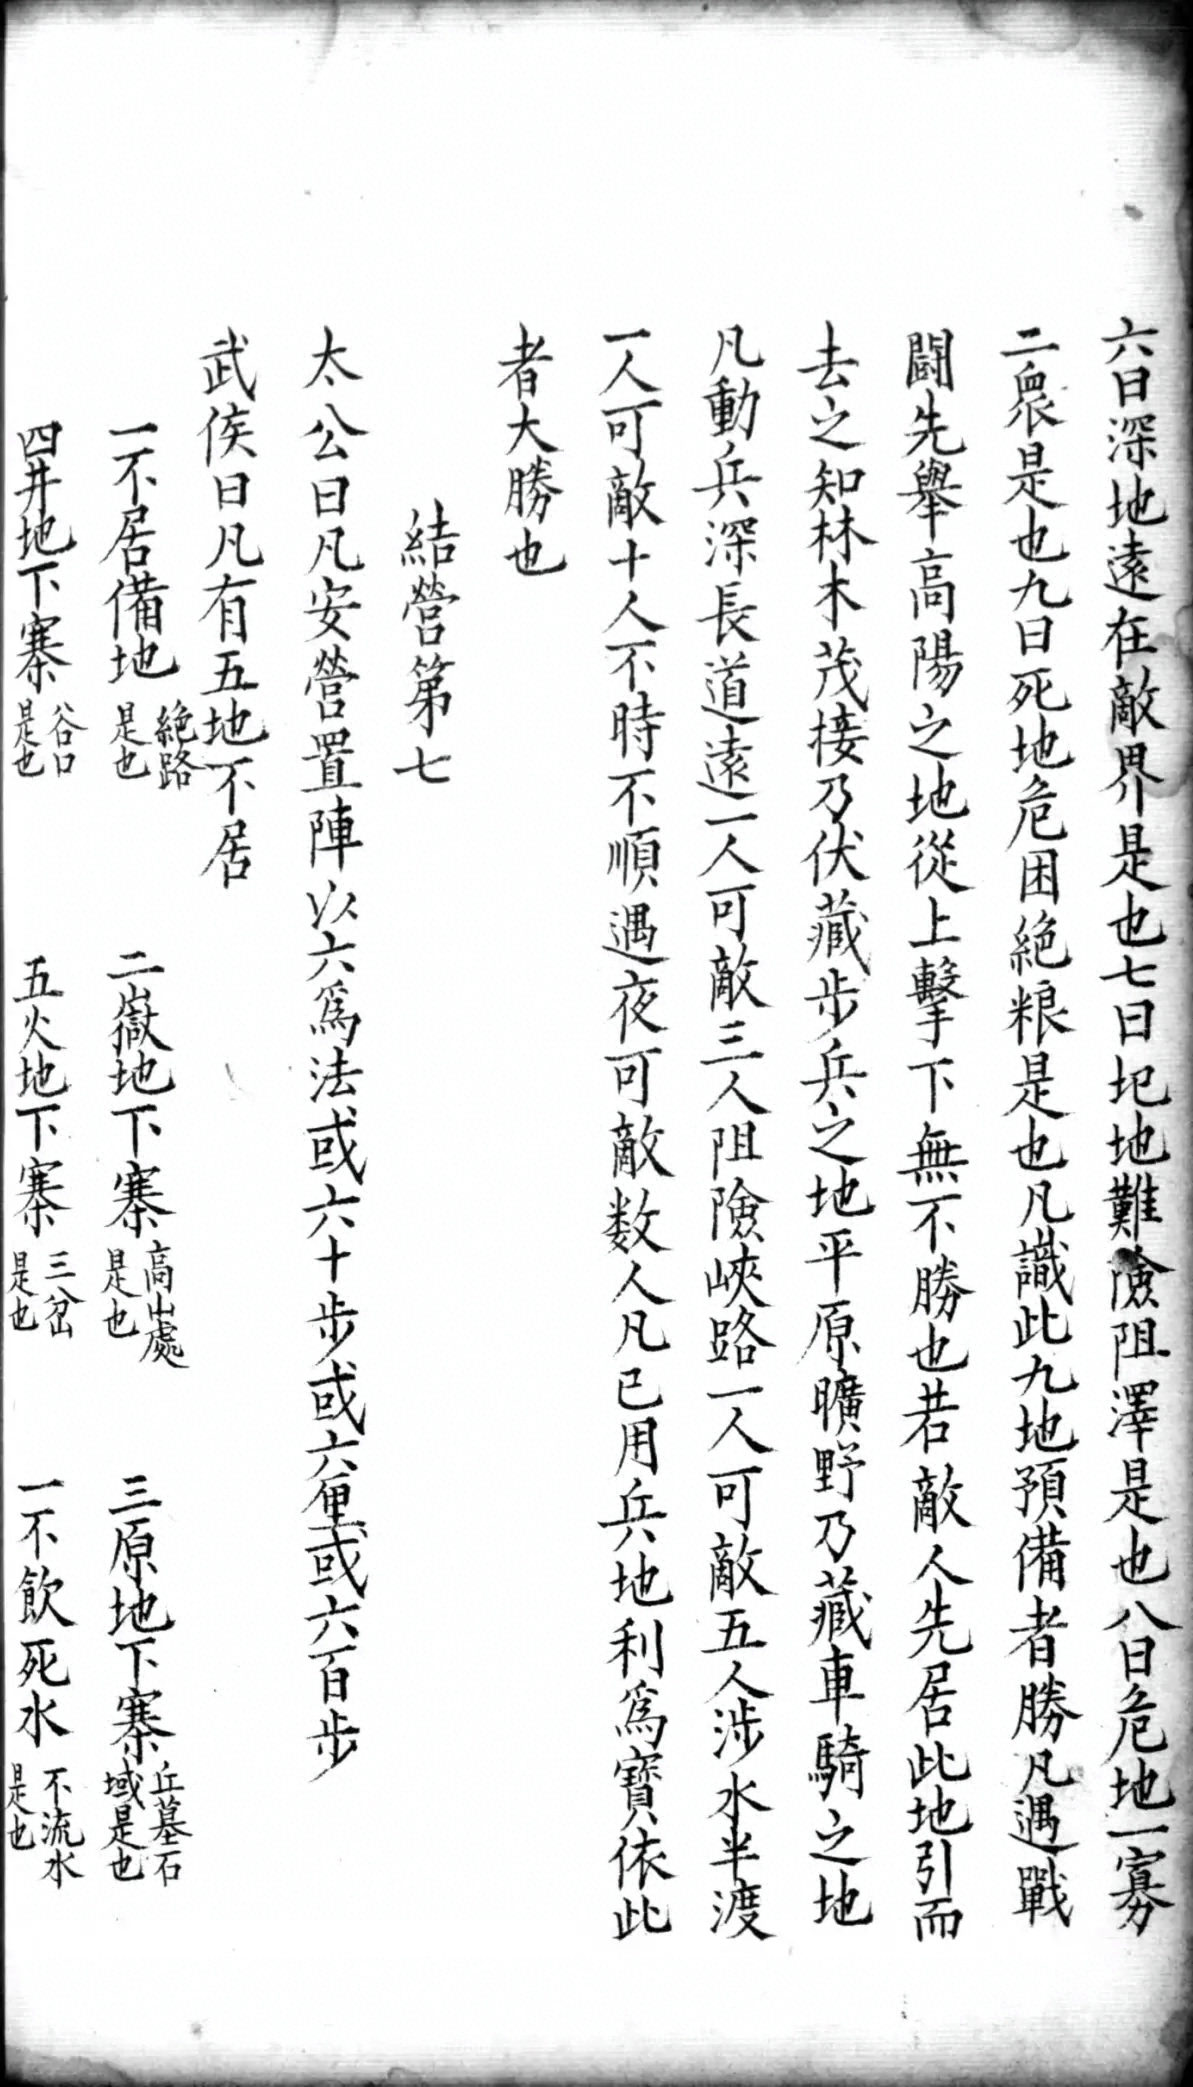 六曰深地遠在敵界是也七曰圯地難險阻澤是也八曰危地一寡
二衆是也九曰死地危困絶粮是也凡識此九地預備者勝凡遇戰
鬪先舉高陽之地從上擊下無不勝也若敵人先居此地引而
去之知林木茂接乃伏藏步兵之地平原曠野乃藏車騎之地
凡動兵深長道遠一人可敵三人阻險峽路一人可敵五人涉水半渡
一人可敵十人不時不順遇夜可敵数人凡已用兵地利爲寳依此
者大勝也
結營第七
太公曰凡安營置陣以六爲法或六十步或六里或六百步
武侯曰凡有五地不居
一不居備地絶路是也 二嶽地下寨高山處是也 三原地下寨丘墓石域是也
四井地下寨谷口是也 五火地下寨三岔是也 一不飲死水不流水是也